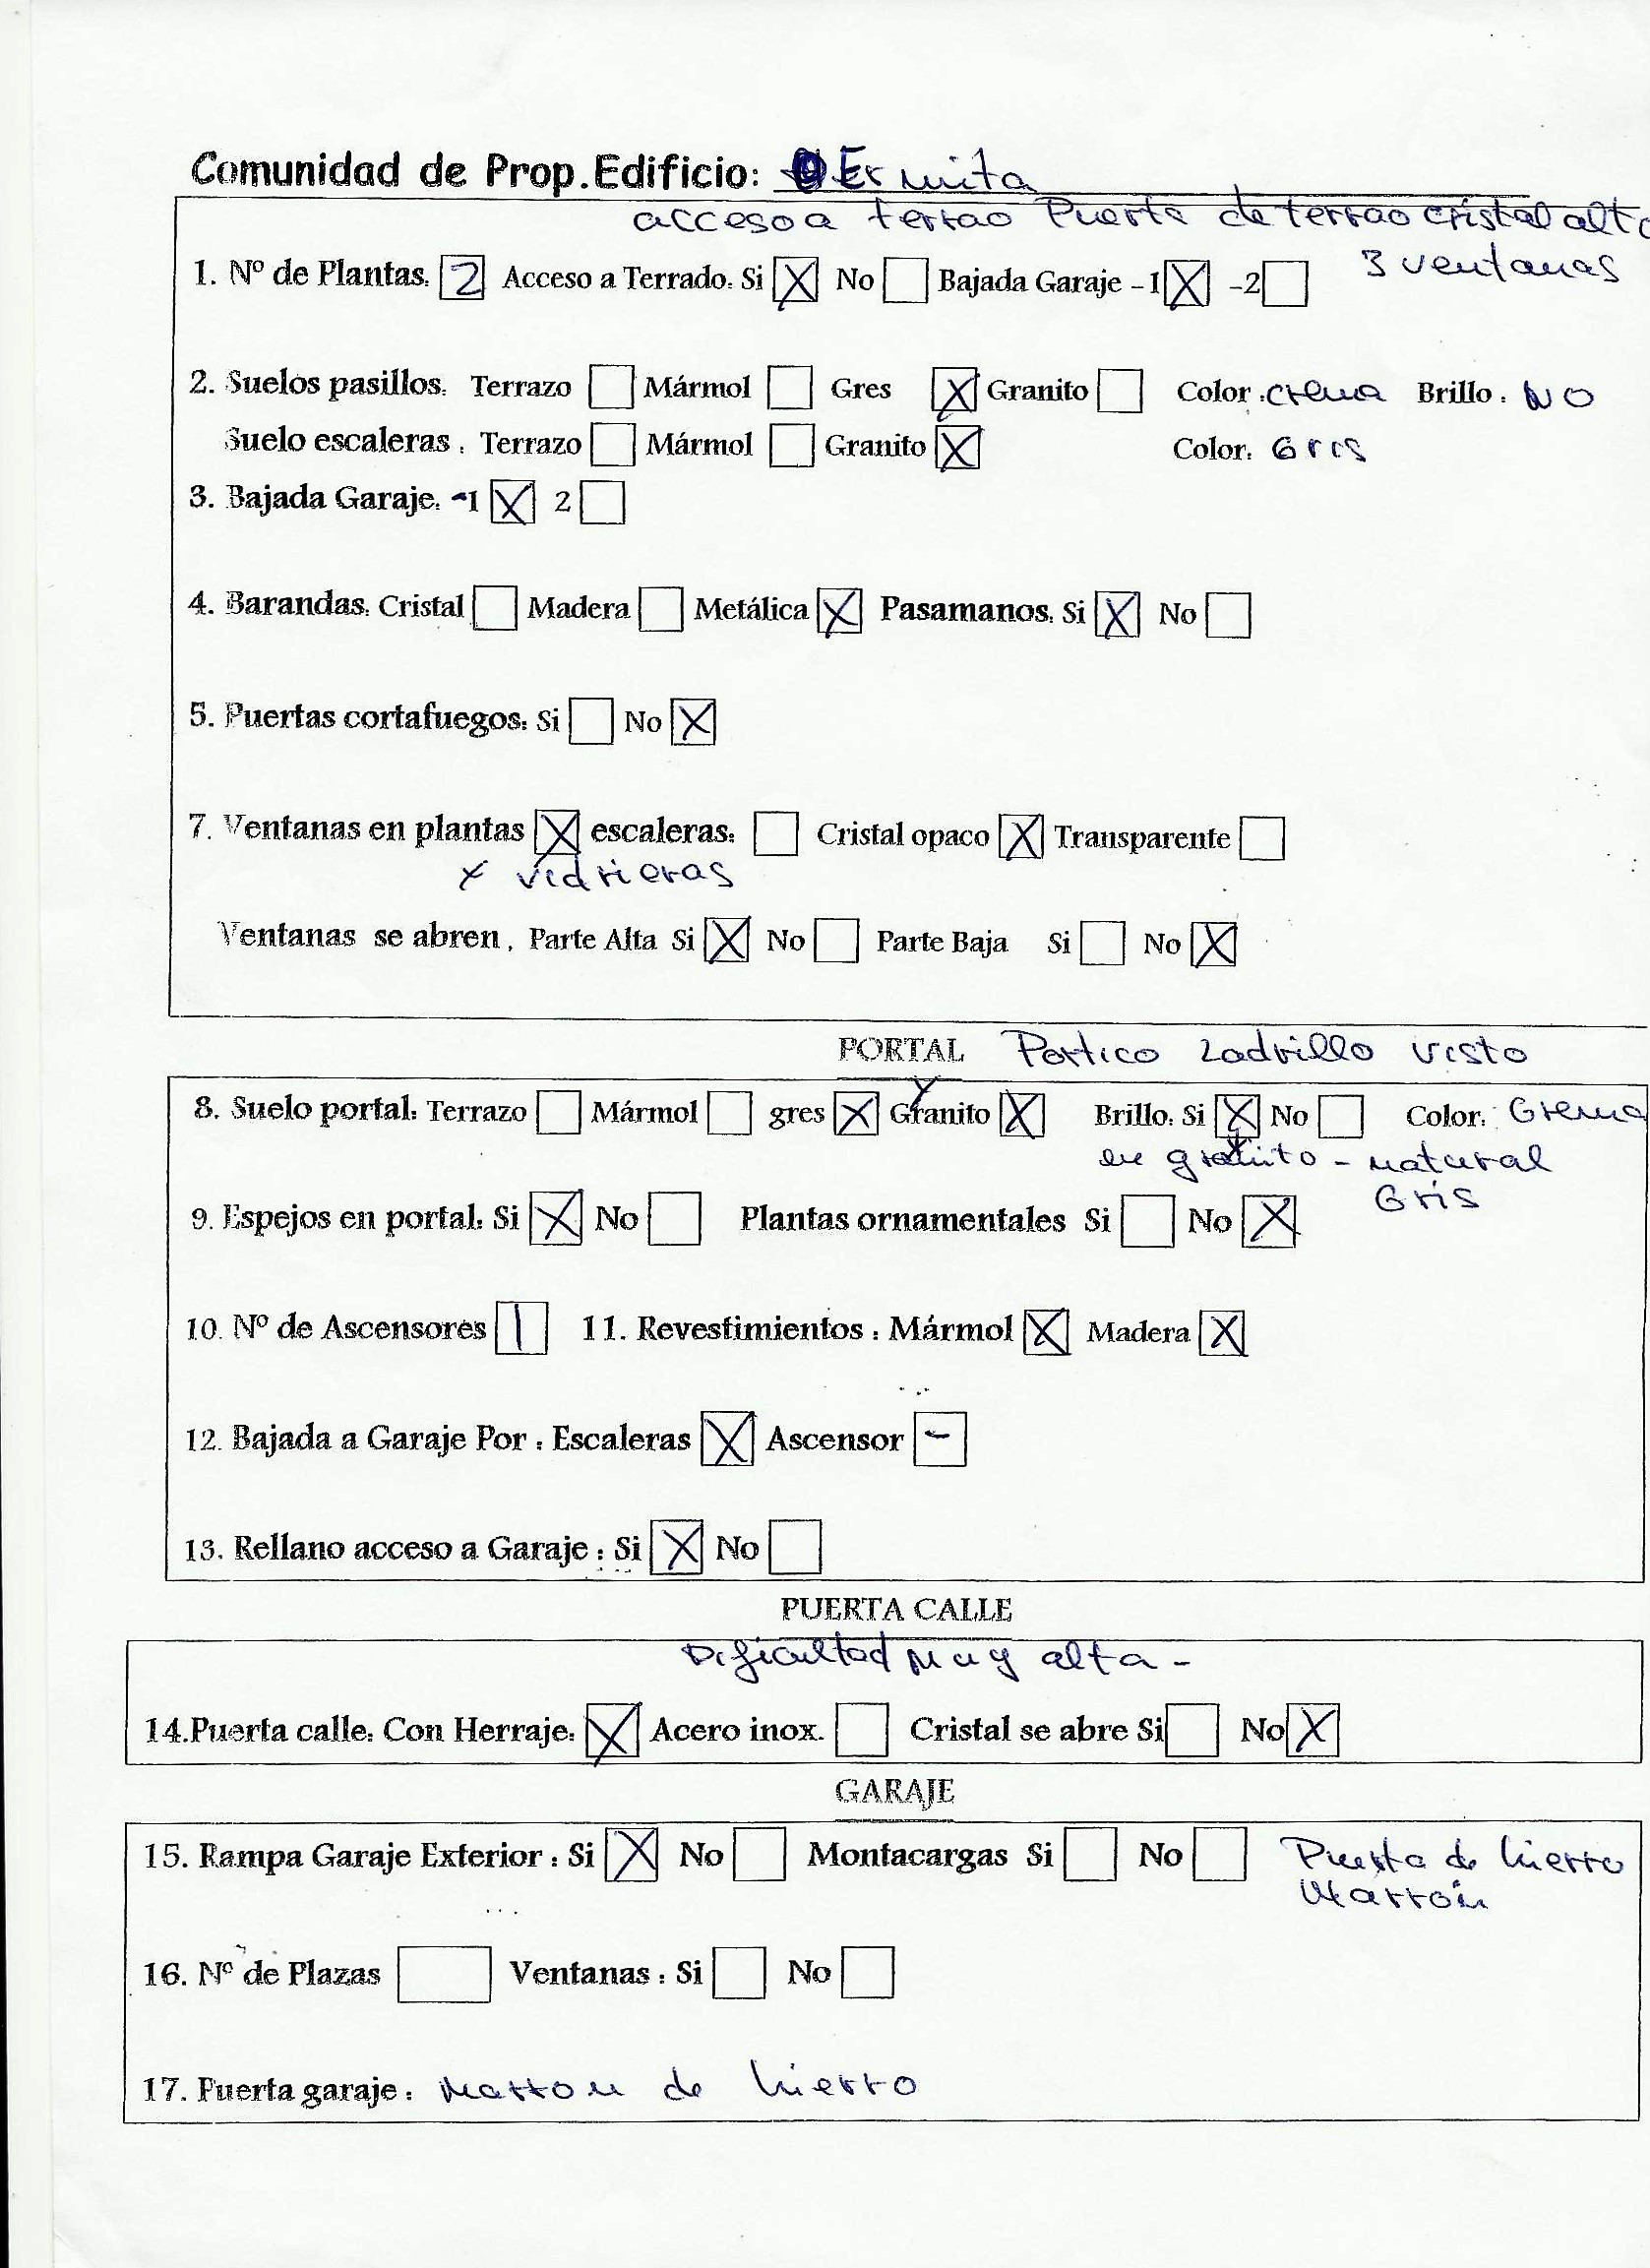 Comunidad de Prop.Edificio: Ermita
acceso a terrao Puerta de terrao cristal alto
1. Nº de Plantas: 2 Acceso a Terrado: Si X No Bajada Garaje -1 X -2 3 ventanas
2. Suelos pasillos: Terrazo Mármol Gres X Granito Color: crema Brillo: NO
Suelo escaleras: Terrazo Mármol Granito X Color: Gris
3. Bajada Garaje: -1 X 2
4. Barandas: Cristal Madera Metálica X Pasamanos: Si X No
5. Puertas cortafuegos: Si No X
7. Ventanas en plantas X escaleras: Cristal opaco X Transparente
x vidrieras
Ventanas se abren, Parte Alta Si X No Parte Baja Si No X
PORTAL Portico Ladrillo visto
8. Suelo portal: Terrazo Mármol gres X Granito X Brillo: Si X No Color: Crema
en granito - natural
Gris
9. Espejos en portal: Si X No Plantas ornamentales Si No X
10. Nº de Ascensores 1 11. Revestimientos: Mármol X Madera X
12. Bajada a Garaje Por: Escaleras X Ascensor -
13. Rellano acceso a Garaje: Si X No
PUERTA CALLE
Dificultad Muy alta -
14.Puerta calle: Con Herraje: X Acero inox. Cristal se abre Si No X
GARAJE
15. Rampa Garaje Exterior: Si X No Montacargas Si No Puerta de hierro
Marrón
16. Nº de Plazas Ventanas: Si No
17. Puerta garaje: Marron de hierro